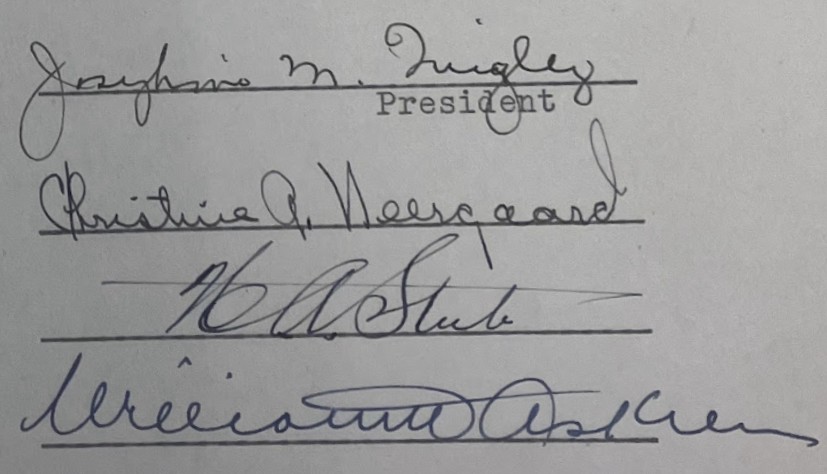 Josephine M. Quigley
President
Christine A. Neergaard
H A
William Askren